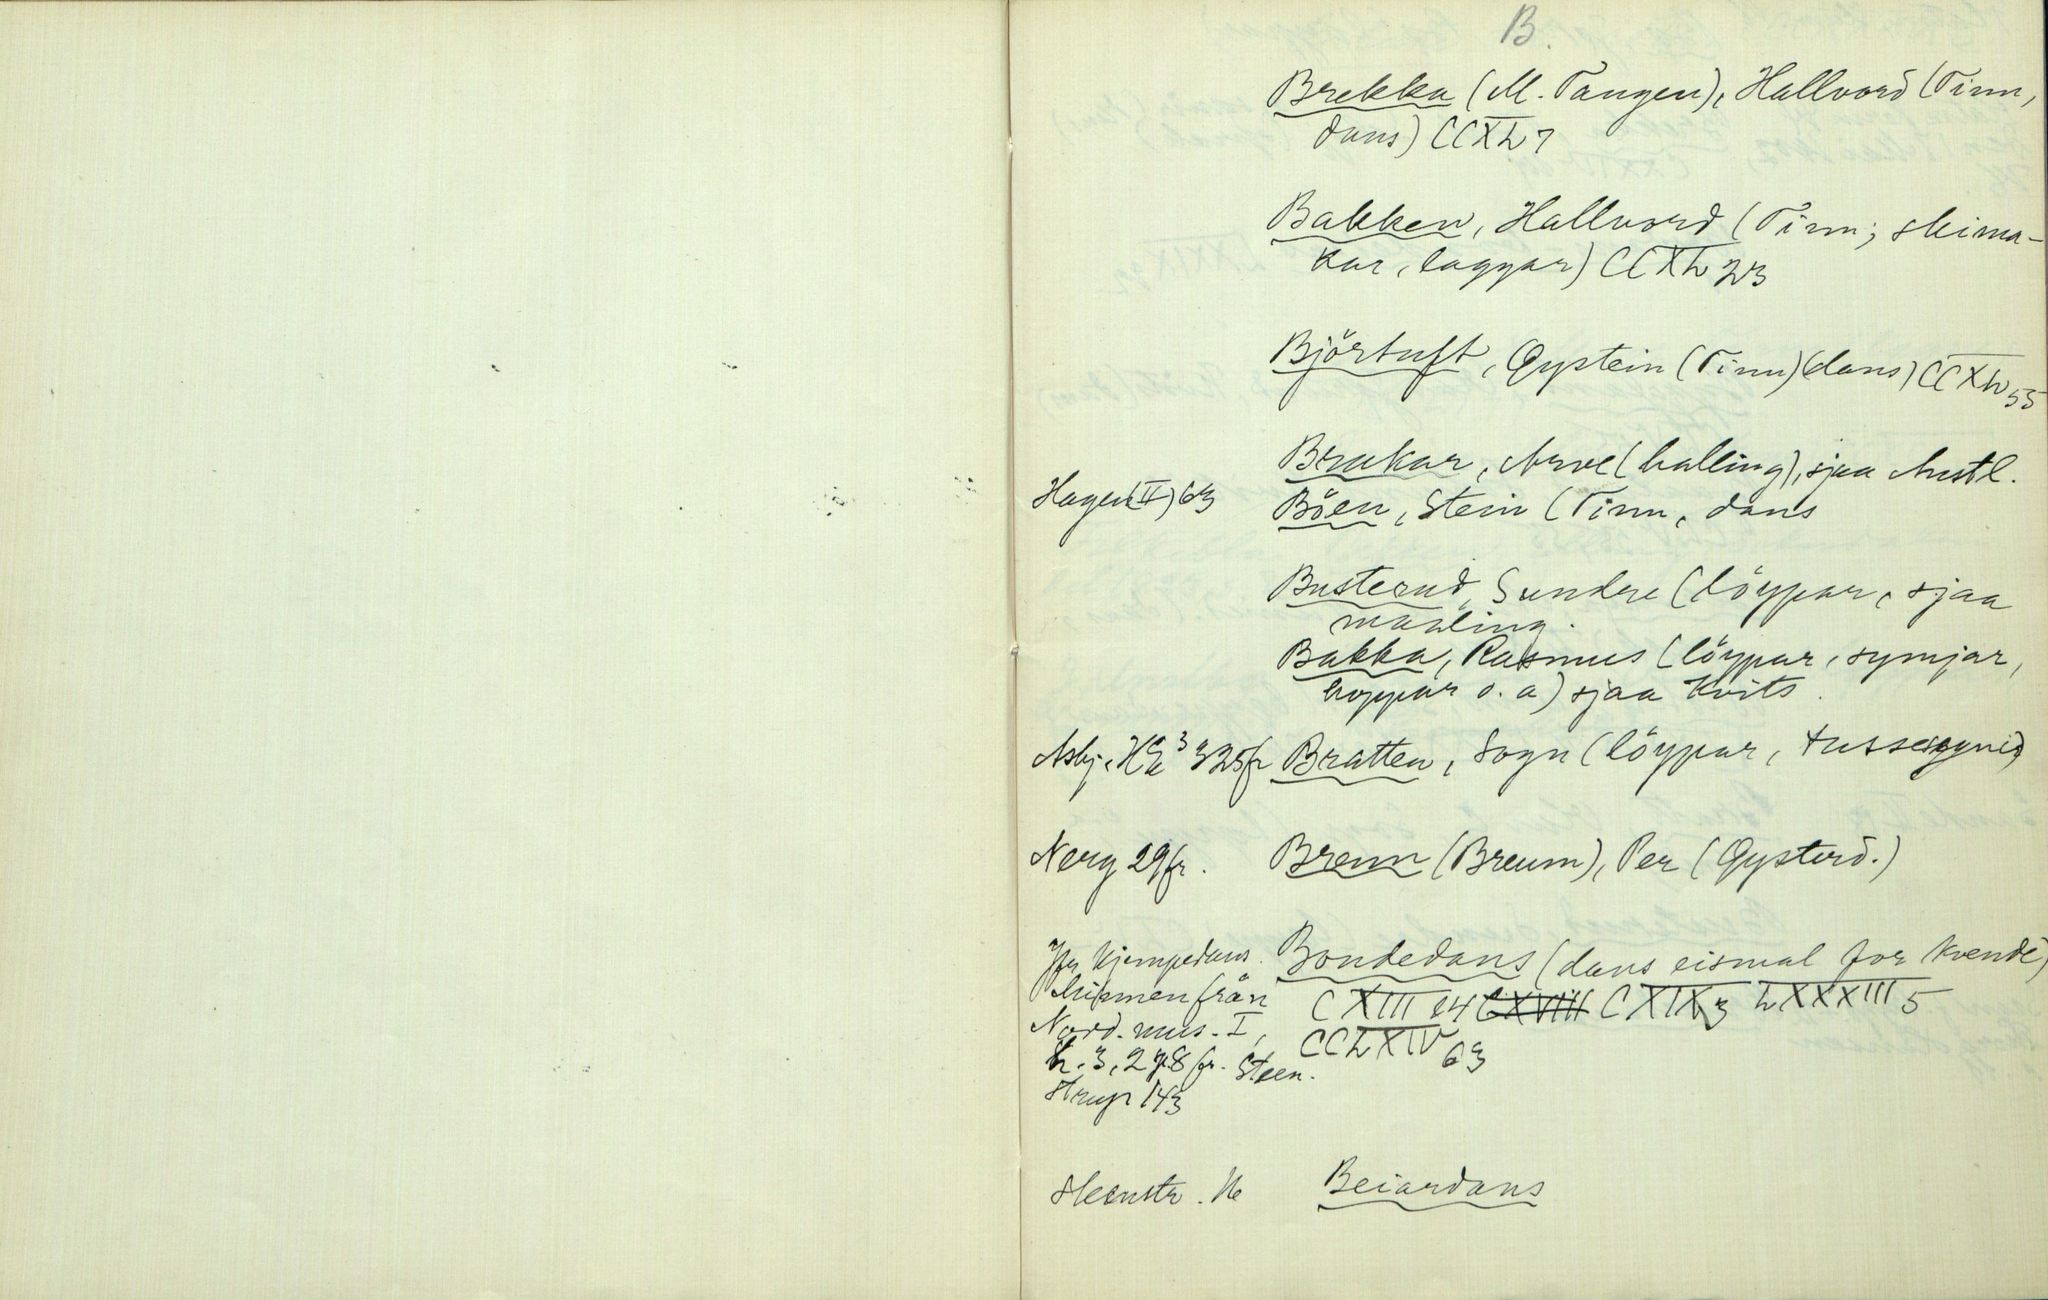 B.
Brekka (M. Tangen), Hallvord (Tinn,
dans) CCXL 7
Bakken, Hallvord (Tinn; skima-
kar, laggar) CCXL 23
Björtuft, Øystein (Tinn) (dans) CCXL 55
Brakar, Arve (halling), sjaa Austl.
Hagen (II) 63 Böen, Stein (Tinn, dans
Busterud, Sundre (löypar, sjaa
maaling.
Bakka, Rasmus (löypar, symjar,
hoppar o. a) sjaa Kvits.
Asbj. HE³ 325fr Bratten, Sogn (löypar,
Nerg 29fr. Brenn (Breum), Per (Øysterd.)
Jfr Kjempedans. Bondedans (dans eismal for kvende)
Minnen från CXIII 14 CXVIII CXIX 3 LXXXIII 5
Nord. mus. I, CCLXIV 63
h. 3, 2 fr. Steen.
strup 143
Steenstr. Beiardans